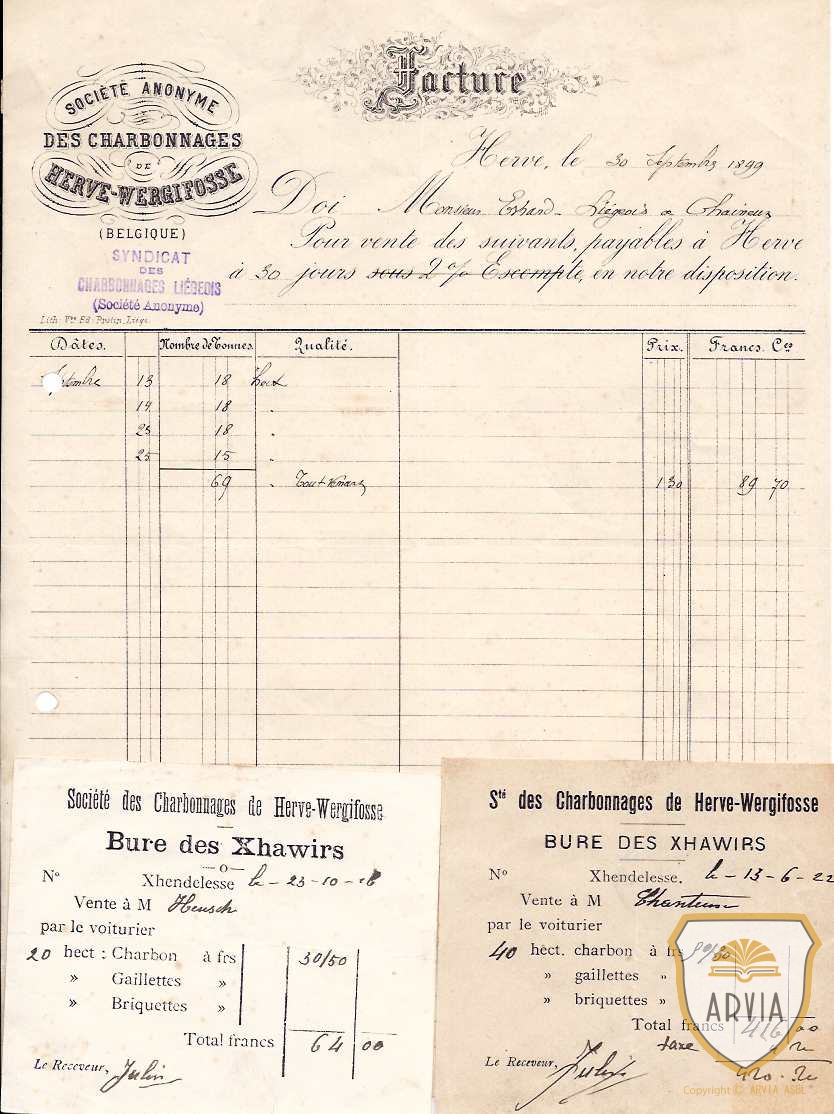 Facture
SOCIÉTÉ ANONYME
DES CHARBONNAGES
DE
HERVE-WERGIFOSSE
(BELGIQUE)
SYNDICAT
DES
CHARBONNAGES LIÉGEOIS
(Société Anonyme)
Lith. Vve Ed. Protin, Liége
Herve, le 30 Septembre 1899
Doi Monsieur Liégeois a Chaineux
Pour vente des suivants, payables à Herve
à 30 jours sous 2% Escompte, en notre disposition.
Dâtes. Nombre de Tonnes. Qualité. Prix. Francs. Ces
Septembre 13 18 hect
14 18 "
23 18 "
25 15 "
69 " Tout venant 1 30 89 70
Société des Charbonnages de Herve-Wergifosse
Bure des Xhawirs
No Xhendelesse le - 23-10-16
Vente à M Heusch
par le voiturier
20 hect : Charbon à frs 30/50
» Gaillettes »
» Briquettes »
Total francs 64 00
Le Receveur, Julin
Sté des Charbonnages de Herve-Wergifosse
BURE DES XHAWIRS
No Xhendelesse. le - 13-6-22
Vente à M
par le voiturier
40 hect. charbon à frs
» gaillettes »
» briquettes »
Total francs 416 00
taxe
420 20
Le Receveur, Julin
ARVIA
Copyright © ARVIA ASBL